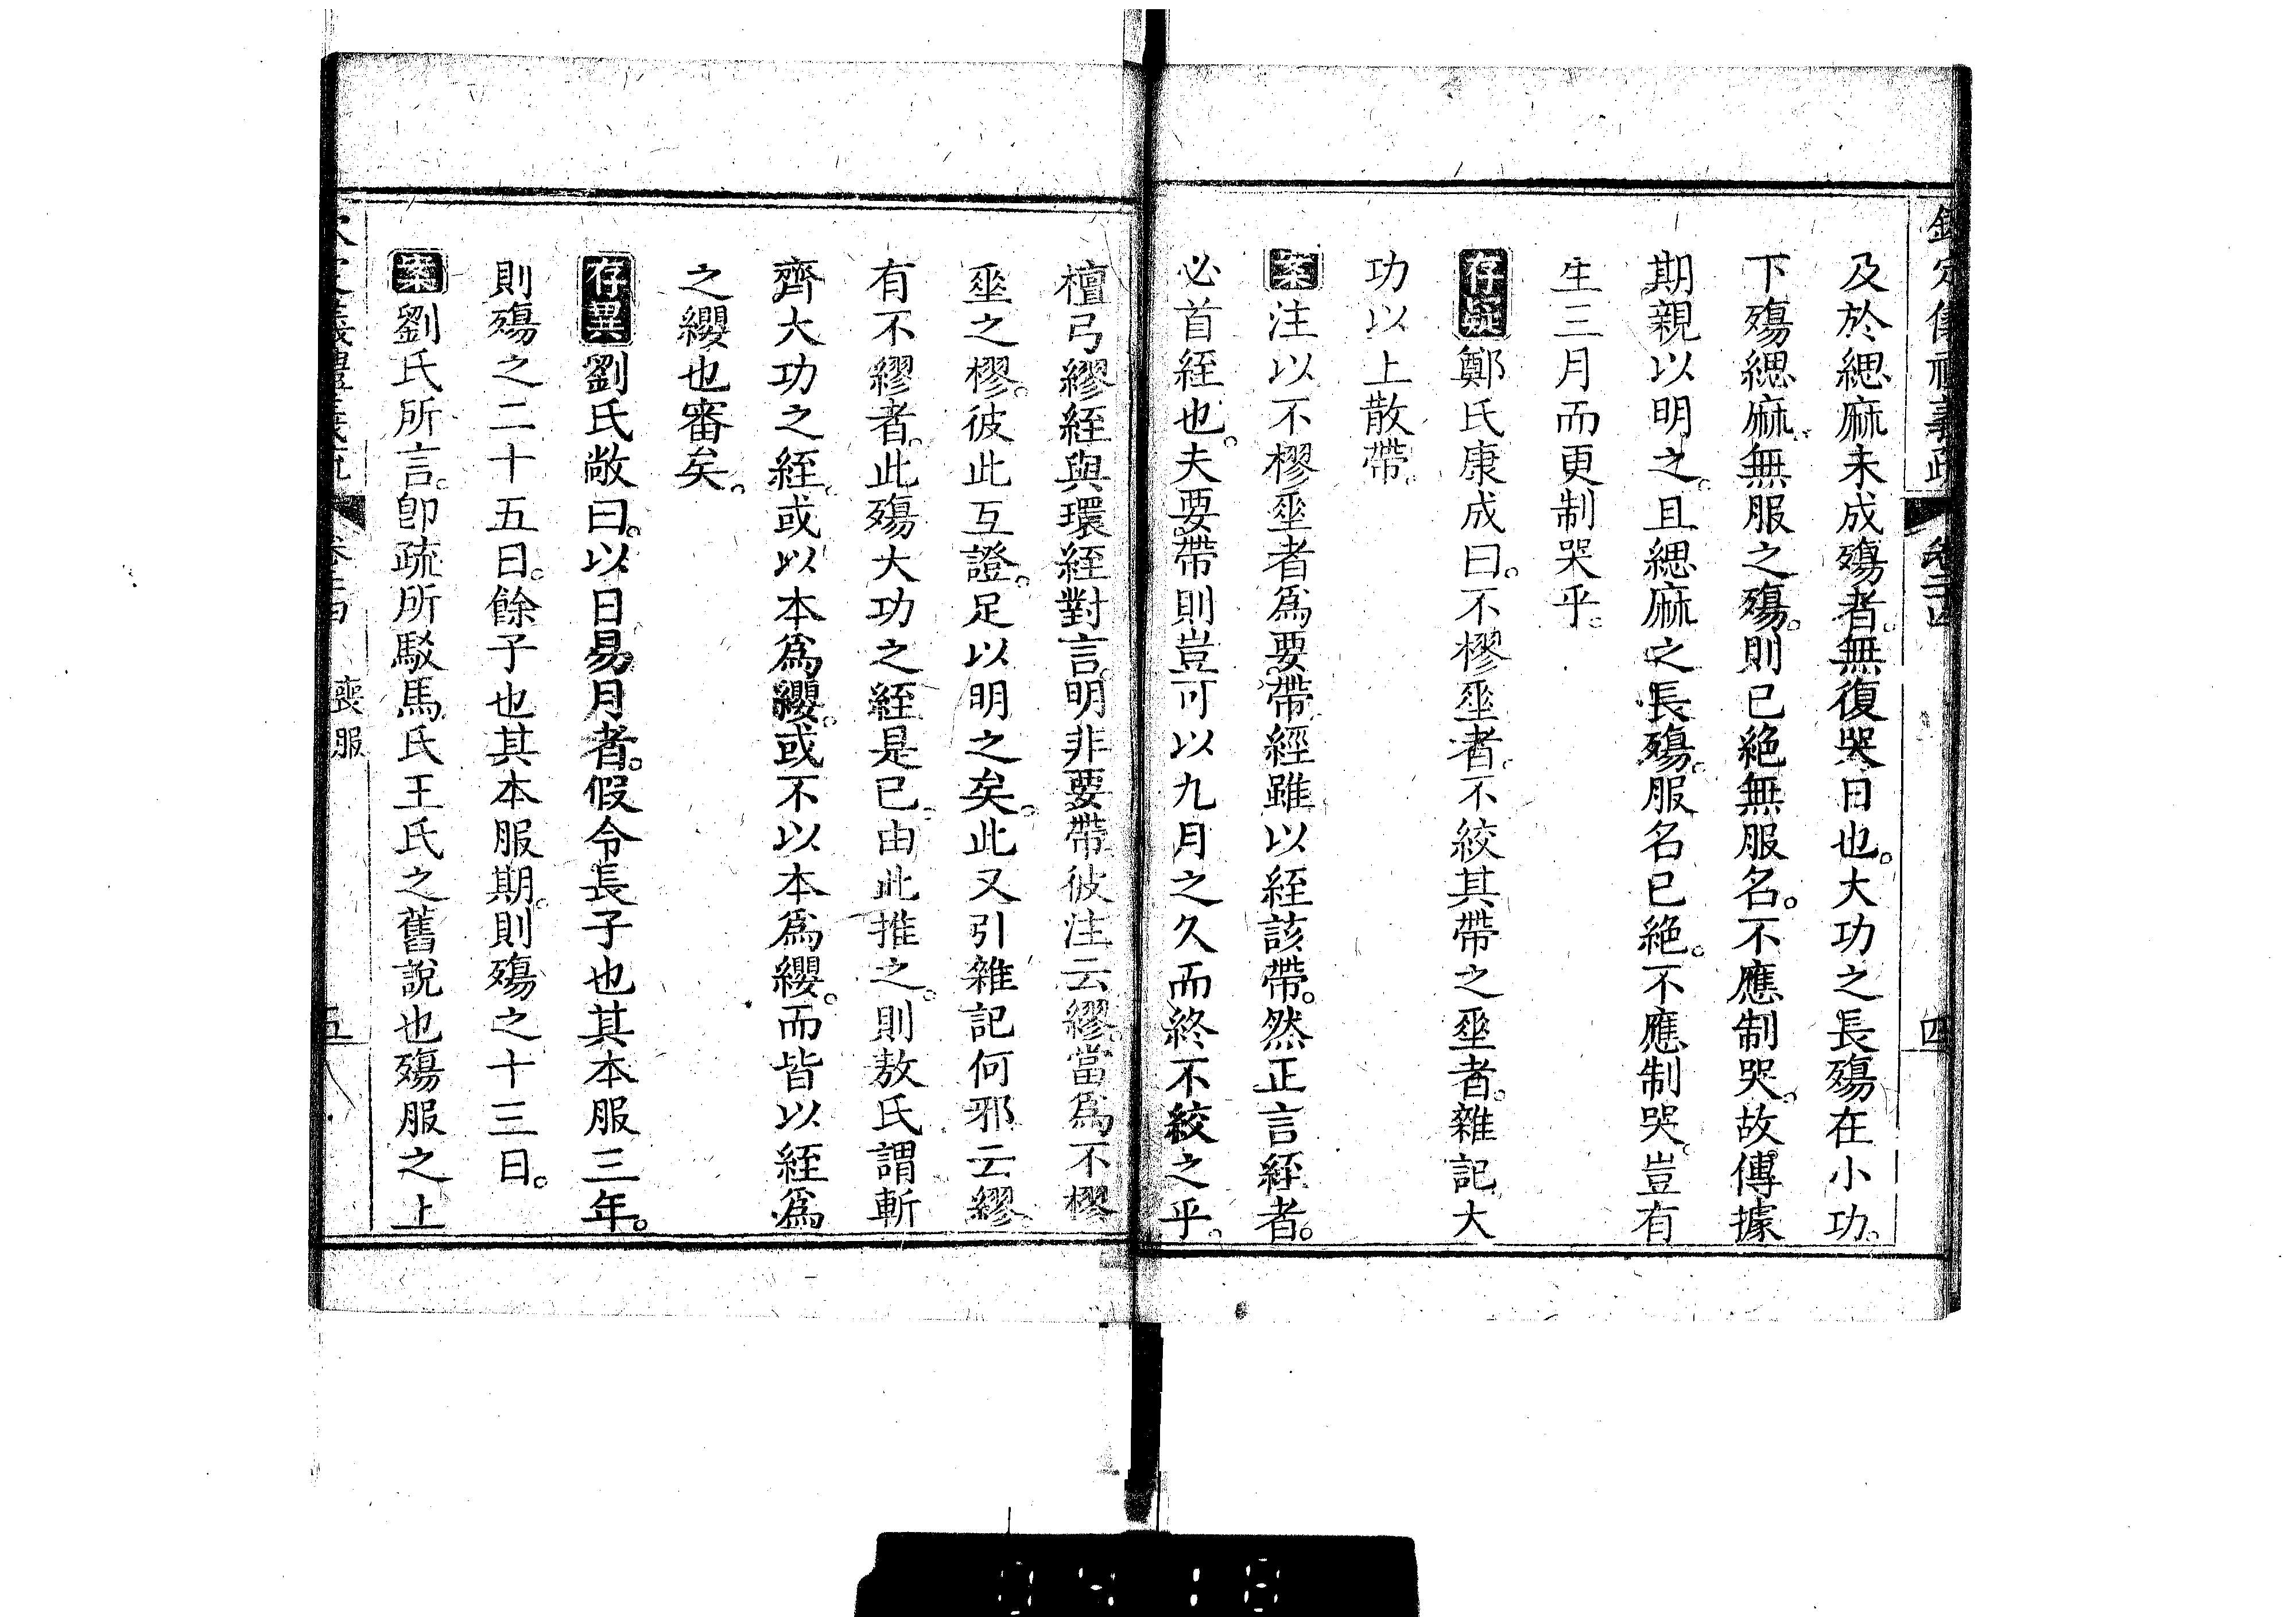 及於緦麻未成殤者。無復哭日也。大功之長殤在小功。
下殤緦麻。無服之殤。則已絶無服名。不應制哭。故傳據
期親以明之。且緦麻之長殤。服名已絶。不應制哭。豈有
生三月而更制哭乎。
存疑鄭氏康成曰。不樛垂者。不絞其帶之垂者。雜記大
功以上散帶。
案注以不樛垂者爲要帶。經雖以絰該帶。然正言絰者。
必首絰也。夫要帶則豈可以九月之久而終不絞之乎。
檀弓繆絰與環絰對言。明非要帶彼注云繆。當爲不樛
垂之樛。彼此互證。足以明之矣。此又引雜記何邪云繆。
有不繆者。此殤大功之絰是已。由此推之。則敖氏謂斬
齊大功之絰。或以本爲纓。或不以本爲纓。而皆以絰爲
之纓也審矣。
存異劉氏敞曰。以日易月者。假令長子也其本服三年。
則殤之二十五日。餘子也其本服期。則殤之十三日。
案劉氏所言。卽疏所駁馬氏王氏之舊說也殤服之上
喪服
五
四